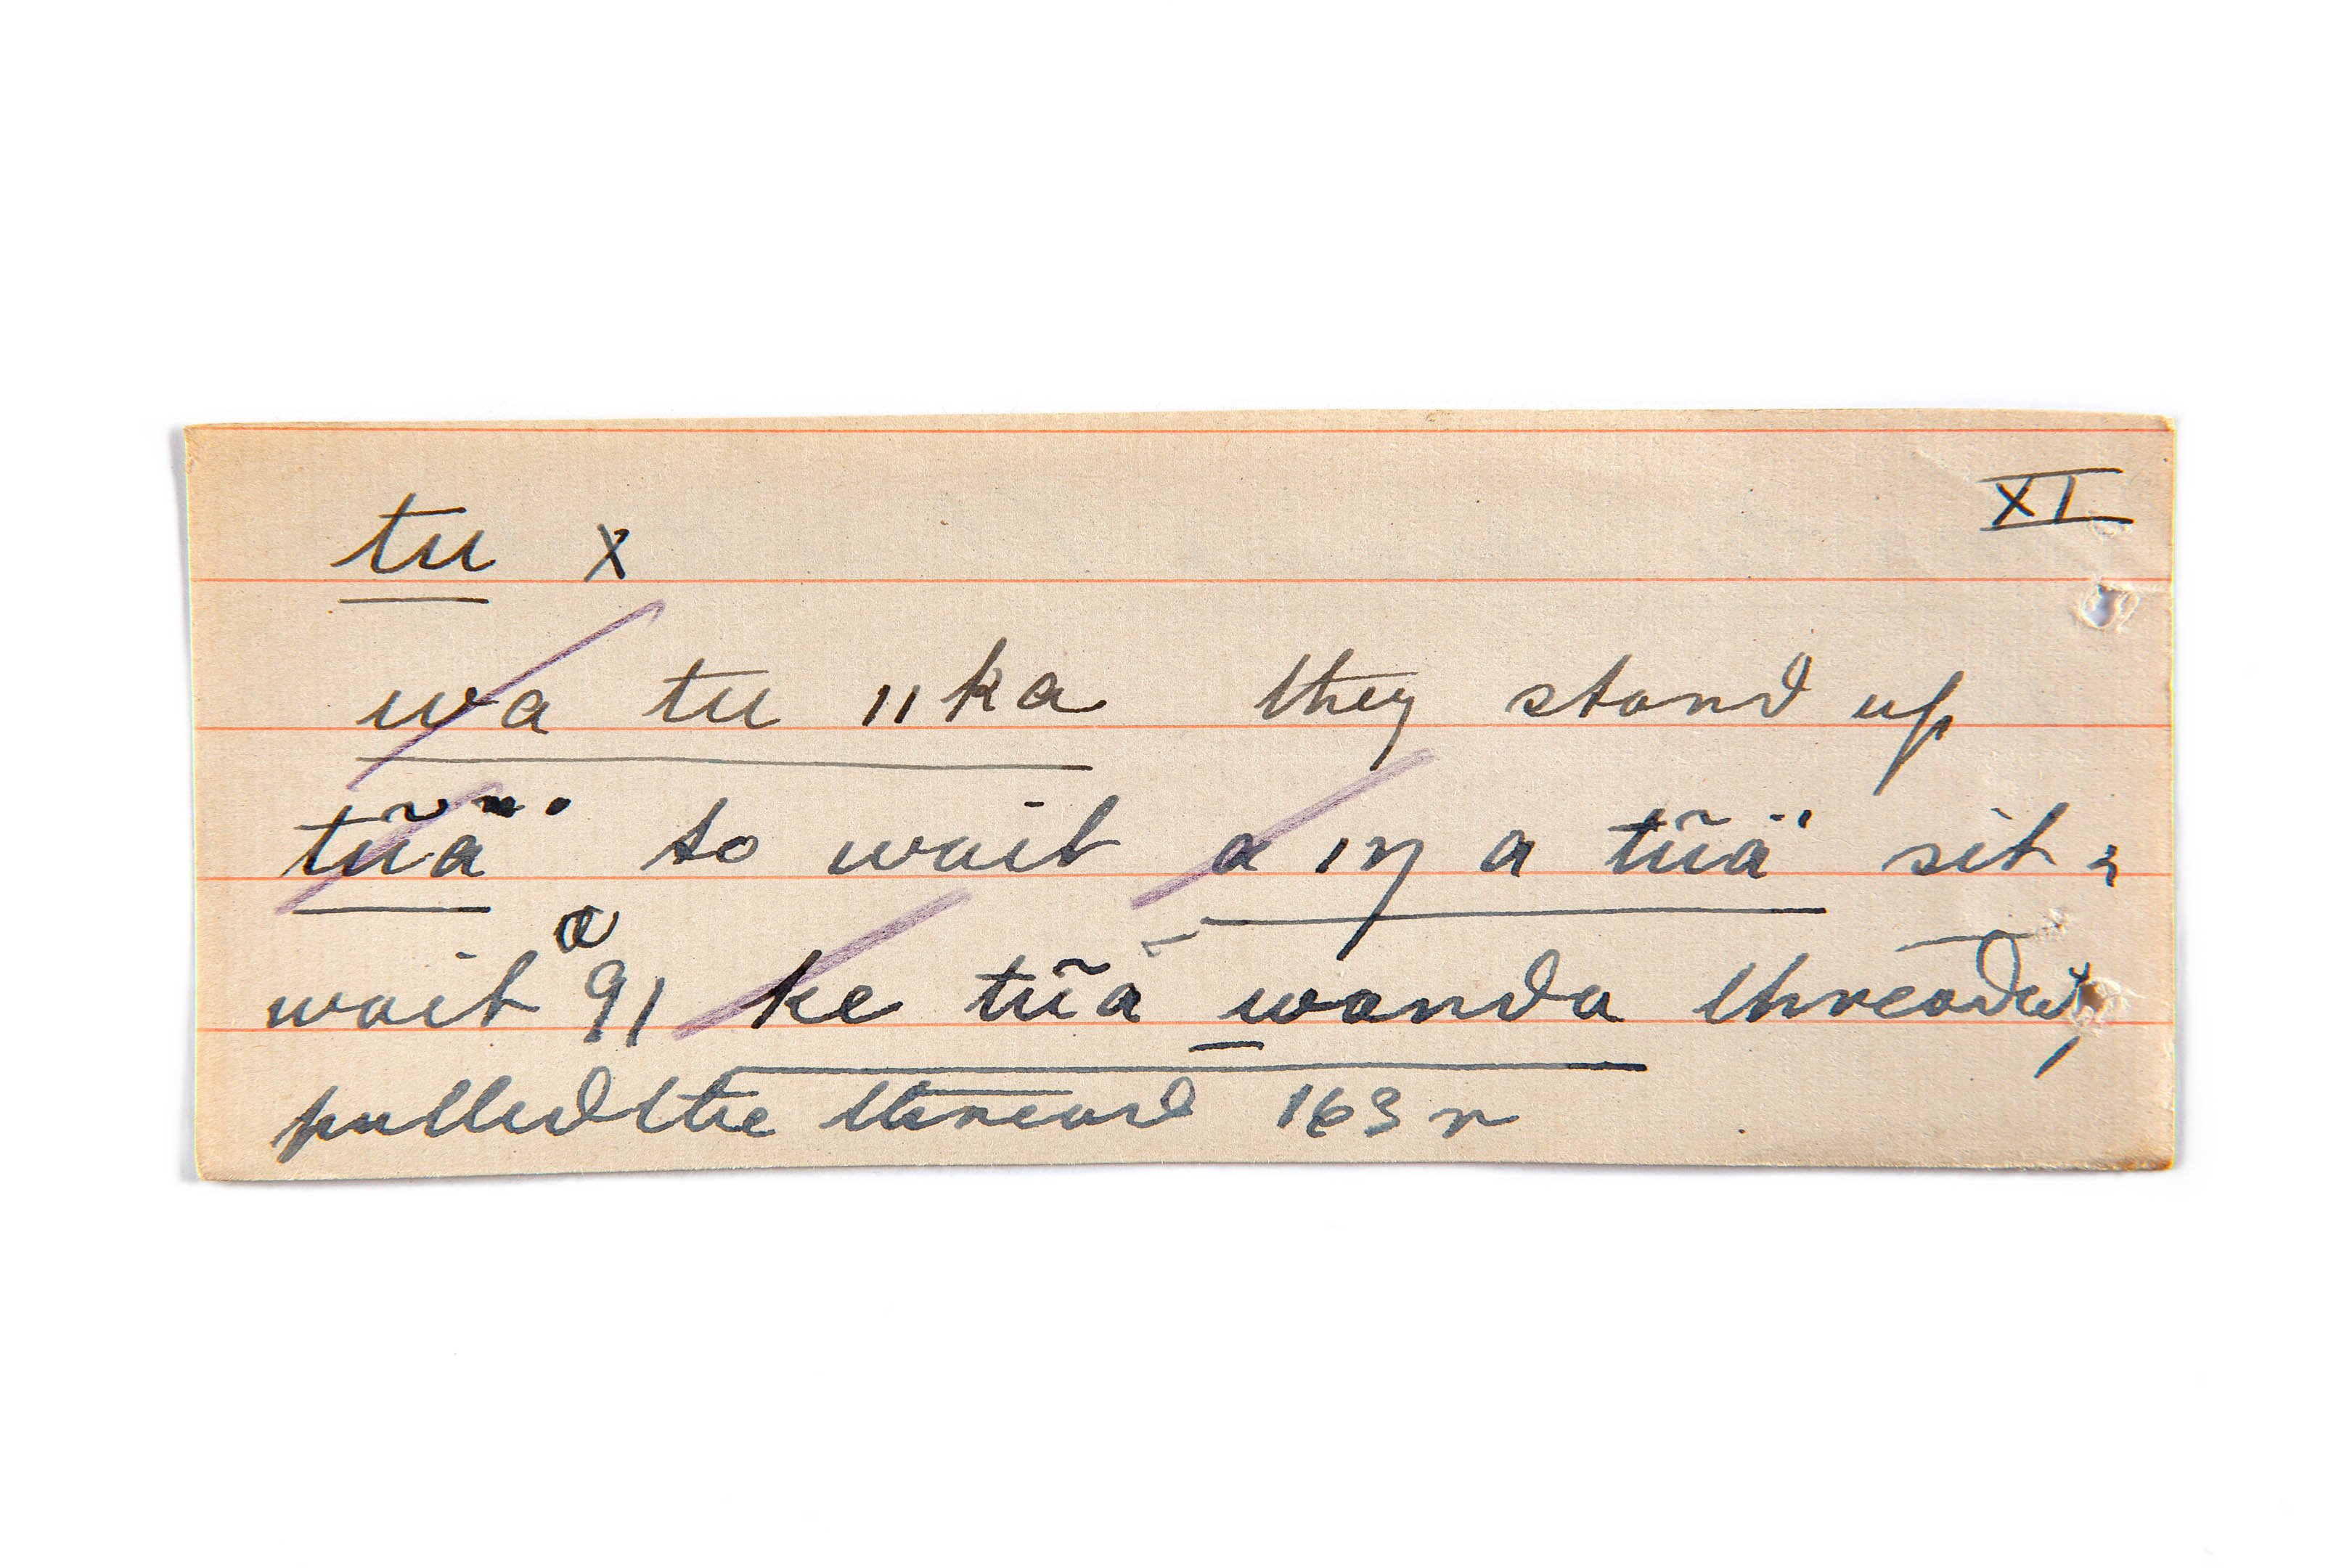 XI
tu x
wa tu ıı ka they stand up
tũä to wait a ıŋ a tũä sit &
wait 91 ke tũä wanda threaded,
pulled the thread 163 r